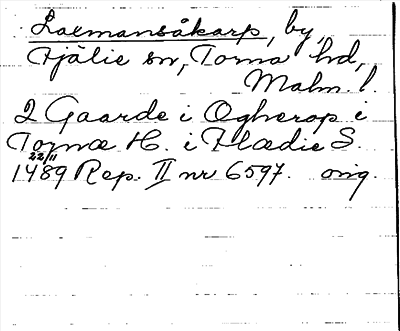 Laemansåkarp, by,
Fjälie sn, Torna hd,
Malm. l.
2 Gaarde i Ogherop i
Tornæ H. i Flædie S
22/11
1489 Rep. II nr 6597. orig.